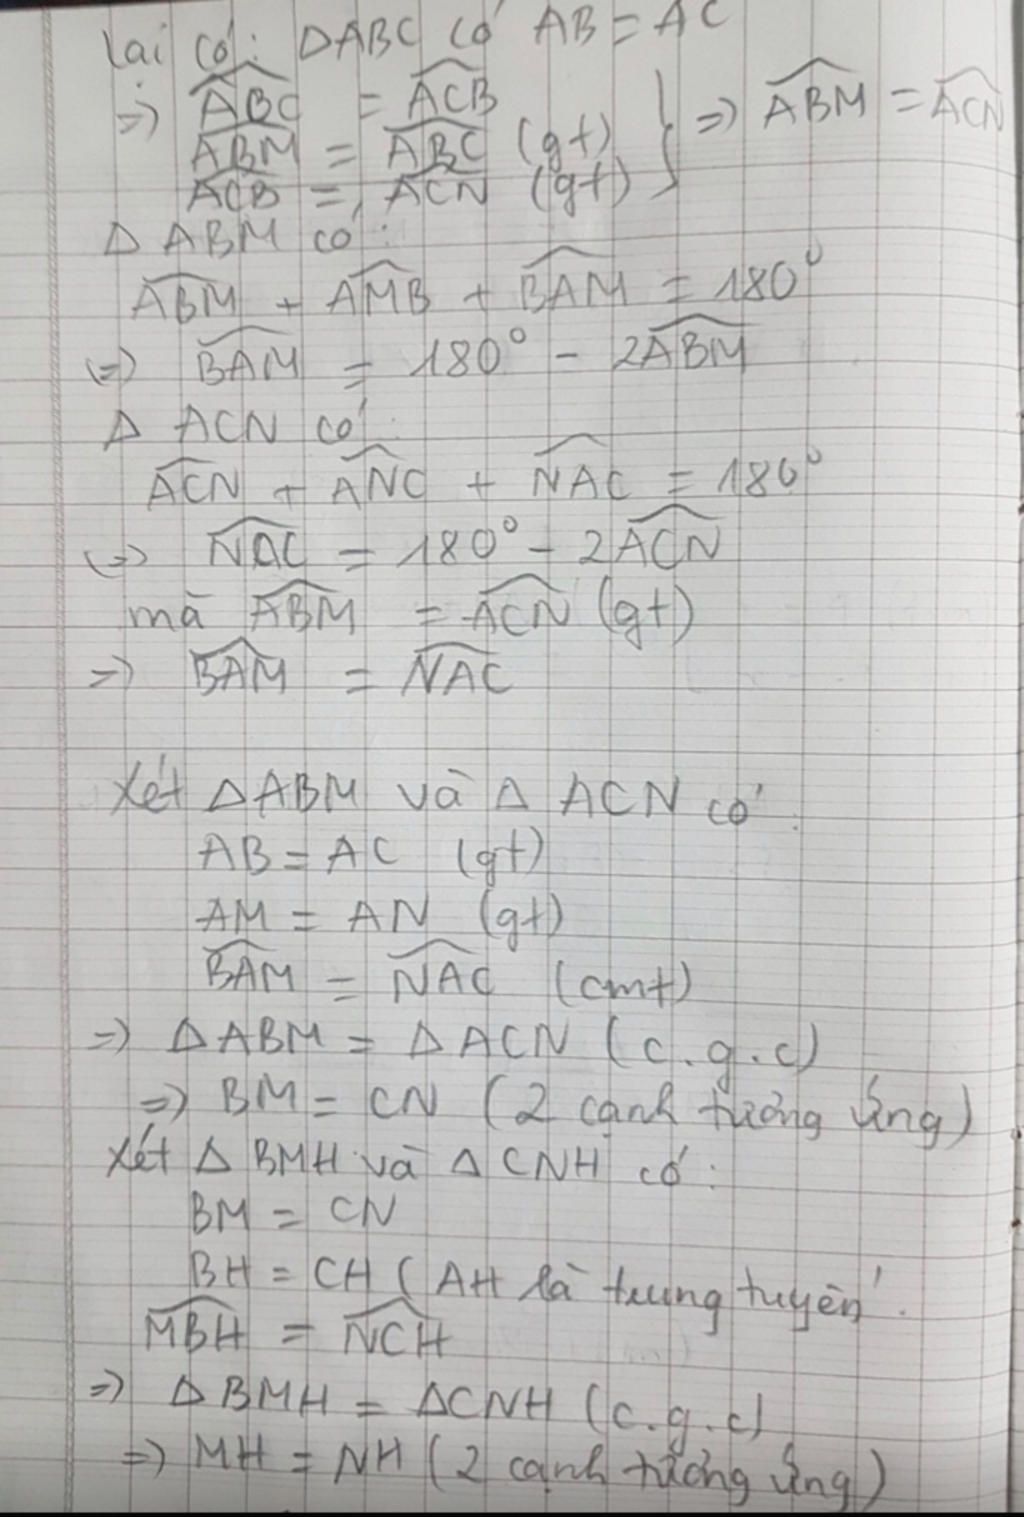 Lại có: ΔABC có AB = AC
=> \widehat{ABC} = \widehat{ACB}
\widehat{ABM} = \widehat{ABC} (gt) } => \widehat{ABM} = \widehat{ACN}
\widehat{ACB} = \widehat{ACN} (gt)
Δ ABM có:
\widehat{ABM} + \widehat{AMB} + \widehat{BAM} = 180°
(=) \widehat{BAM} = 180° - 2\widehat{ABM}
Δ ACN có:
\widehat{ACN} + \widehat{ANC} + \widehat{NAC} = 180°
(=) \widehat{NAC} = 180° - 2\widehat{ACN}
mà \widehat{ABM} = \widehat{ACN} (gt)
=> \widehat{BAM} = \widehat{NAC}
Xét ΔABM và Δ ACN có:
AB = AC (gt)
AM = AN (gt)
\widehat{BAM} = \widehat{NAC} (cmt)
=> ΔABM = ΔACN (c.g.c)
=> BM = CN (2 cạnh tương ứng)
Xét Δ BMH và Δ CNH có:
BM = CN
BH = CH (AH là trung tuyến.
\widehat{MBH} = \widehat{NCH}
=> ΔBMH = ΔCNH (c.g.c)
=> MH = NH (2 cạnh tương ứng)